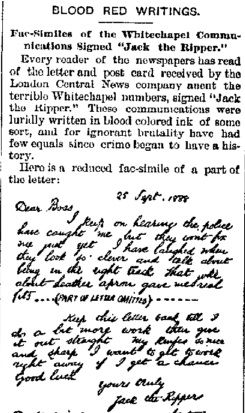 BLOOD RED WRITINGS.
Fac-Similes of the Whitechapel Commu-
nications Signed "Jack the Ripper."
Every reader of the newspapers has read
of the letter and post card received by the
London Central News company anent the
terrible Whitechapel numbers, signed "Jack
the Ripper." These communications were
luridly written in blood colored ink of some
sort, and for ignorant brutality have had
few equals since crime began to have a his-
tory.
Here is a reduced fac-simile of a part of
the letter:
25 Sept. 1888
Dear Boss,
I keep on hearing the police
have caught me but they wont fix
me just yet. I have laughed when
they look so clever and talk about
being on the right track. That joke
about leather apron gave me real
fits --- (PART OF LETTER OMITTED) ---
Keep this letter back till I
do a bit more work then give
it out straight. My knifes so nice
and sharp I want to get to work
right away if I get a chance
Good luck
Yours truly
Jack the Ripper